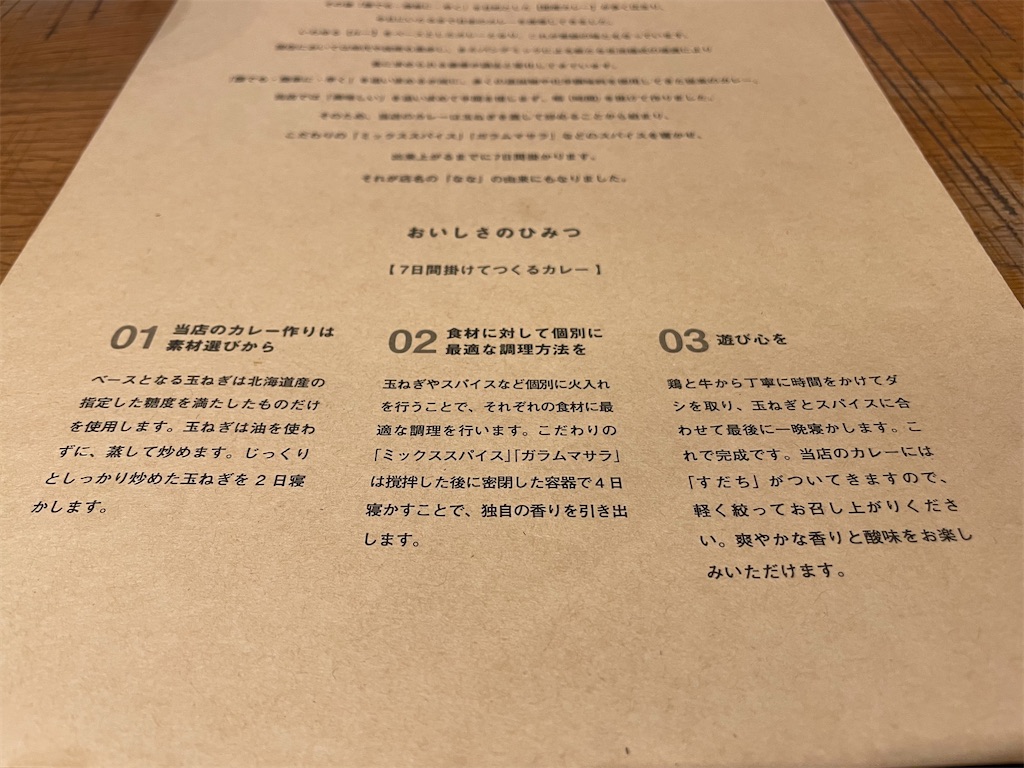 そのため、当店のカレーは玉ねぎを蒸して炒めることから始まり、
こだわりの「ミックススパイス」「ガラムマサラ」などのスパイスを寝かせ、
出来上がるまでに7日間掛かります。
それが店名の「なな」の由来にもなりました。
おいしさのひみつ
【7日間掛けてつくるカレー】
01 当店のカレー作りは
素材選びから
ベースとなる玉ねぎは北海道産の
指定した糖度を満たしたものだけ
を使用します。玉ねぎは油を使わ
ずに、蒸して炒めます。じっくり
としっかり炒めた玉ねぎを 2 日寝
かします。
02 食材に対して個別に
最適な調理方法を
玉ねぎやスパイスなど個別に火入れ
を行うことで、それぞれの食材に最
適な調理を行います。こだわりの
「ミックススパイス」「ガラムマサラ」
は撹拌した後に密閉した容器で 4 日
寝かすことで、独自の香りを引き出
します。
03 遊び心を
鶏と牛から丁寧に時間をかけてダ
シを取り、玉ねぎとスパイスに合
わせて最後に一晩寝かします。こ
れで完成です。当店のカレーには
「すだち」がついてきますので、
軽く絞ってお召し上がりくださ
い。爽やかな香りと酸味をお楽し
みいただけます。